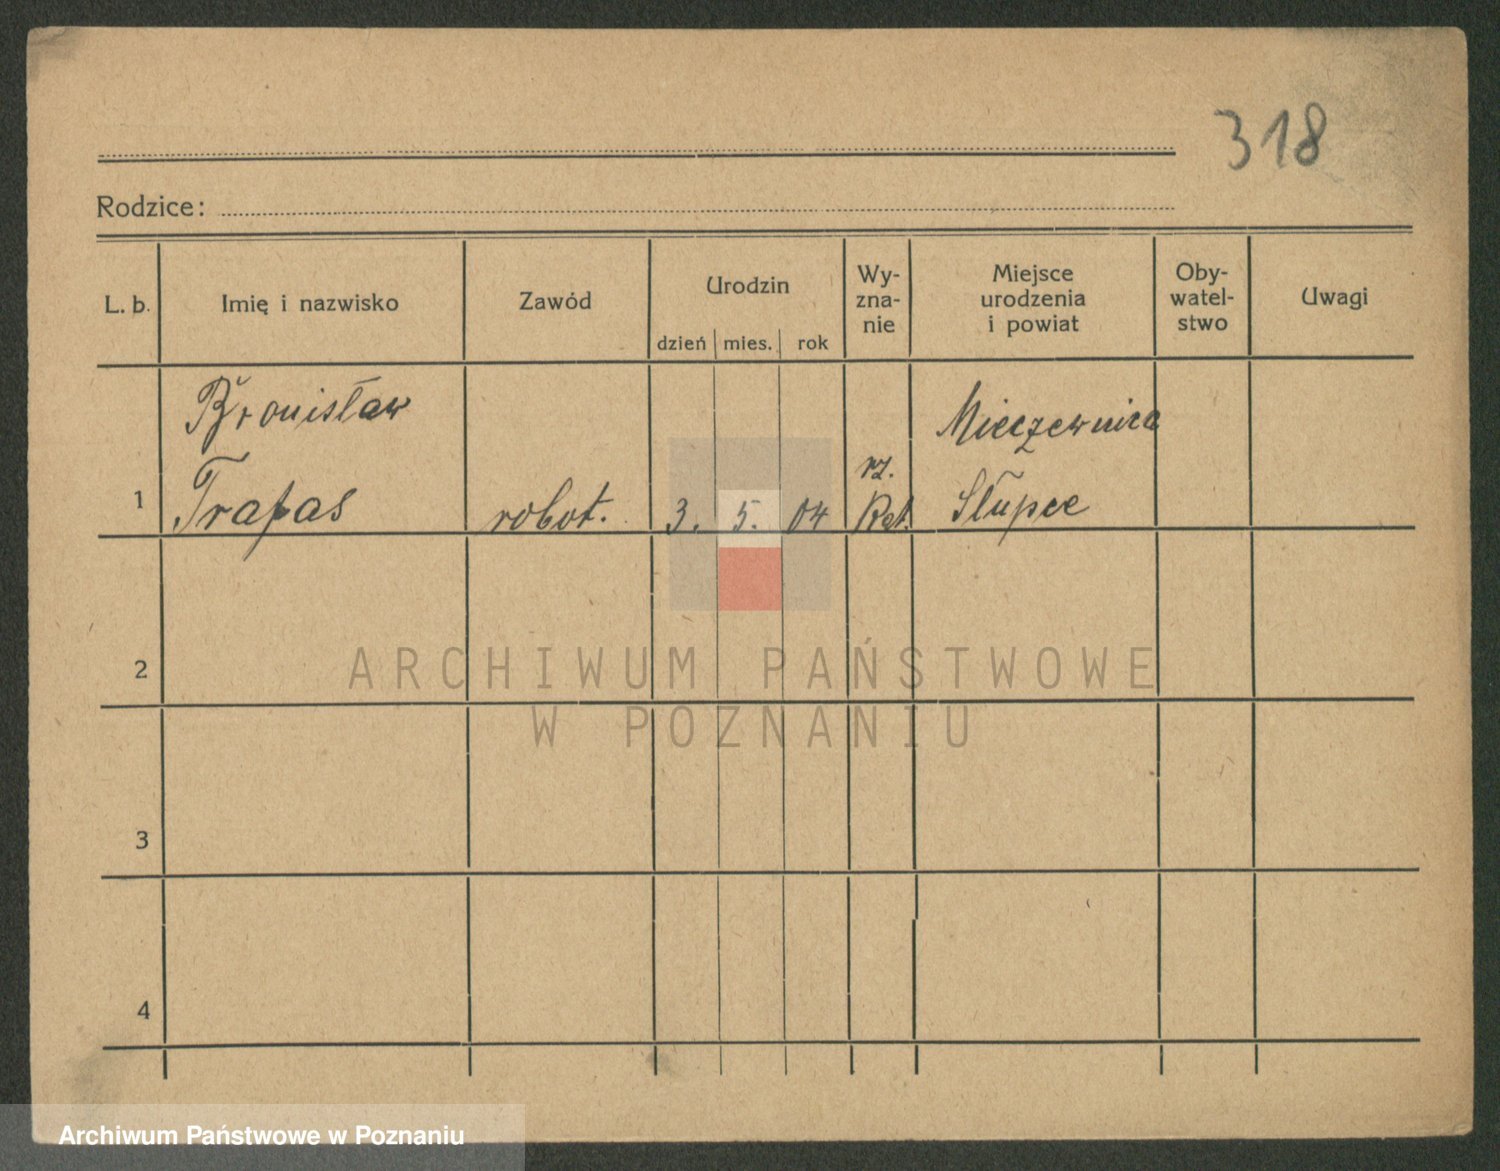 318
Rodzice:
L. b.
Imię i nazwisko
Zawód
Urodzin
dzień mies. rok
Wy-
zna-
nie
Miejsce
urodzenia
i powiat
Oby-
watel-
stwo
Uwagi
1
Bronisław
Trapas
robot.
3. 5. 04
rz.
Kat.
Mieczewnica
Słupce
2
3
4
ARCHIWUM PAŃSTWOWE
W POZNANIU
Archiwum Państwowe w Poznaniu